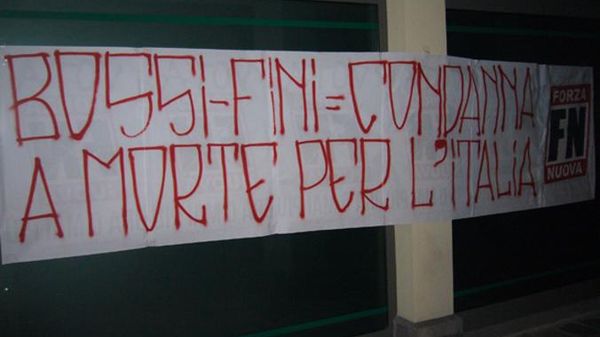 BOSSI-FINI=CONDANNA
A MORTE PER L'ITALIA
FORZA
FN
NUOVA